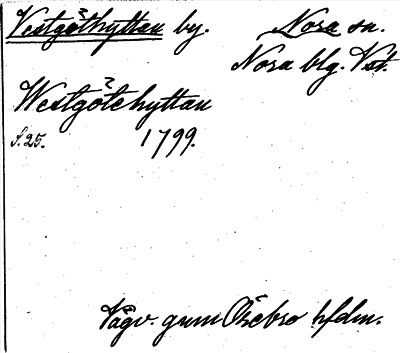 Vestgöthyttan by. Nora sn.
Nora blg. Vst.
Westgötehyttan
S. 25. 1799.
Vägv. genom Örebro hfdm.